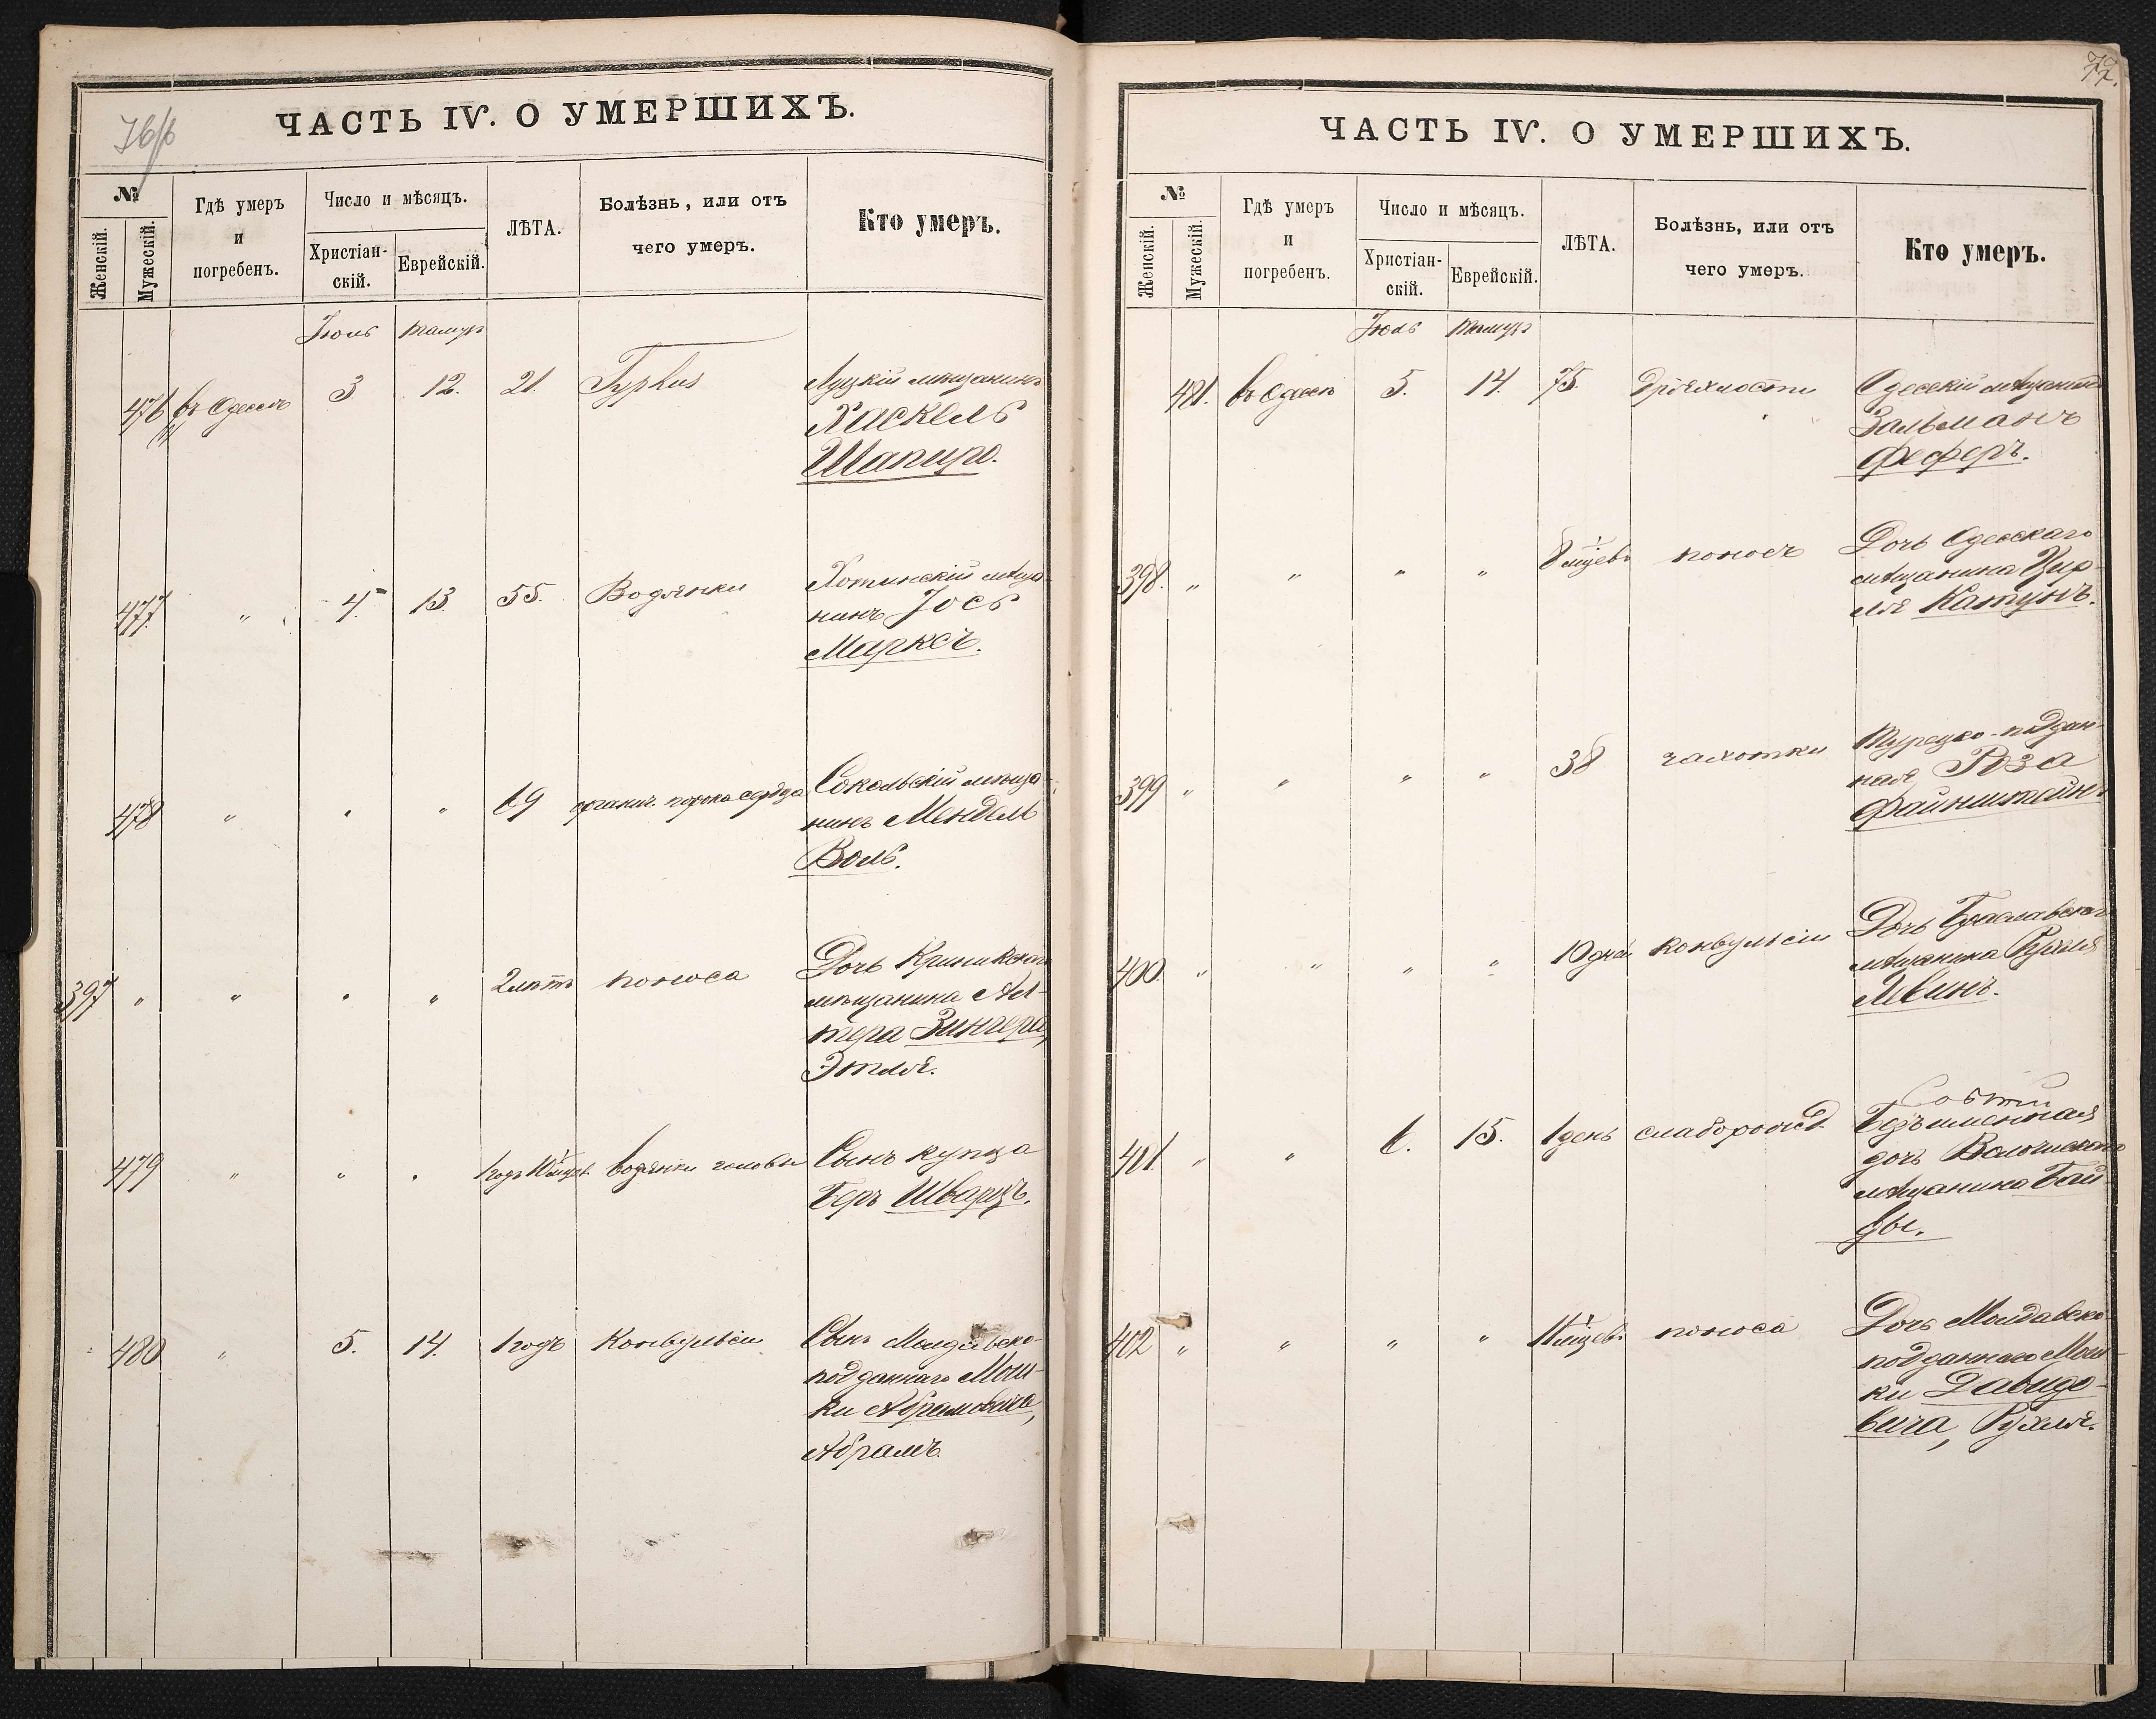 76/б
ЧАСТЬ IV. О УМЕРШИХЪ.
№
Женскій.
Мужескій.
Гдѣ умеръ
и
погребенъ.
Число и мѣсяцъ.
Христіан-
скій.
Еврейскій.
ЛѢТА.
Болѣзнь, или отъ
чего умеръ.
Кто умеръ.
Іюль Тамузъ
476 въ Одессѣ 3 12. 21. Typhus Луцкій мѣщанинъ
Хаскель
Шапиро.
477 " 4. 13. 55. Водянки Хотинскій мѣща-
нинъ Іось
Марксъ.
478 " " " 69 органич. порока сердца Сокольскій мѣща-
нинъ Мендель
Воль.
397 " " " " 2 лѣтъ поноса Дочь Криникскаго
мѣщанина Аль-
тера Зингера,
Этля.
479 " " " 1 годъ 10 мѣсяц. водянки головы Сынъ купца
Беръ Шварцъ.
480 " 5. 14. 1 годъ Конвульсіи Сынъ Молдавско-
подданнаго Мош-
ки Абрамовича,
Абрамъ.
77.
ЧАСТЬ IV. О УМЕРШИХЪ.
№
Женскій.
Мужескій.
Гдѣ умеръ
и
погребенъ.
Число и мѣсяцъ.
Христіан-
скій.
Еврейскій.
ЛѢТА.
Болѣзнь, или отъ
чего умеръ.
Кто умеръ.
Іюль Тамузъ
481. въ Одессѣ 5. 14. 75. Дряхлости Одесскій мѣщанинъ
Зальманъ
Феферъ.
398. " " " " 8 мѣсяцевъ поносъ Дочь Одесскаго
мѣщанина Цир-
ля Катунъ.
399 " " " " 38 чахотки Турецко-поддан-
ная Роза
Файнштейнъ
400. " " " " 10 дней конвульсіи Дочь Брацлавскаго
мѣщанина Рухля
Левинъ.
401. " " 6. 15. 1 день слаборожд. Безъименная
дочь
мѣщанина Бай-
ды.
402 " " " " 11 мѣсяцевъ поноса Дочь Молдавско-
подданнаго Мош-
ки Давидо-
вича, Рухля.